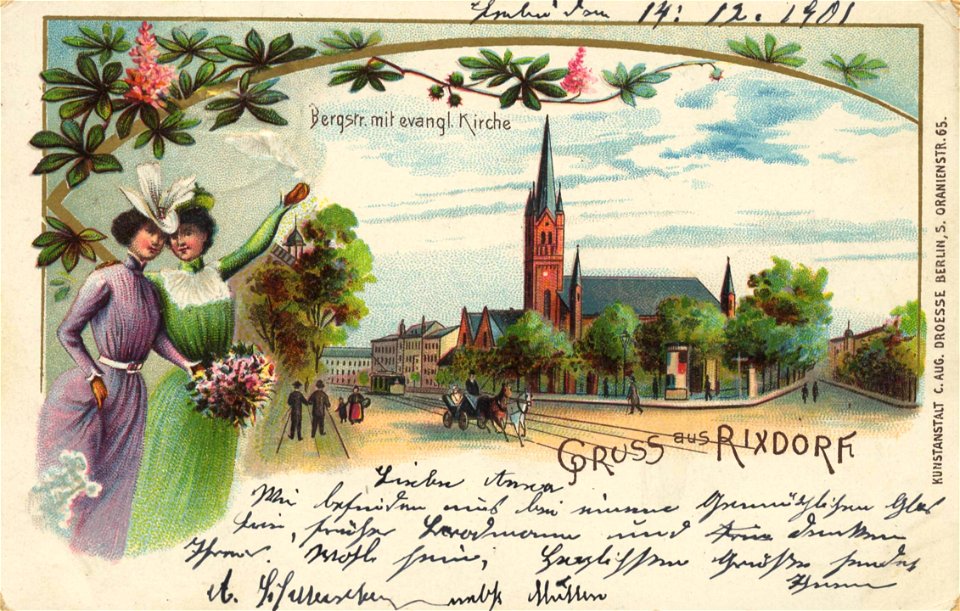 den 14. 12. 1901
Bergstr. mit evangl. Kirche
GRUSS aus RIXDORF
KUNSTANSTALT C. AUG. DROESSE BERLIN, S. ORANIENSTR. 65.
Anna
Wir befinden uns bei einem Gemütlichen Glas
und denken
Ihrer. Wohl sein, Herzlichsten Grüße sendet
A. nebst Mutter